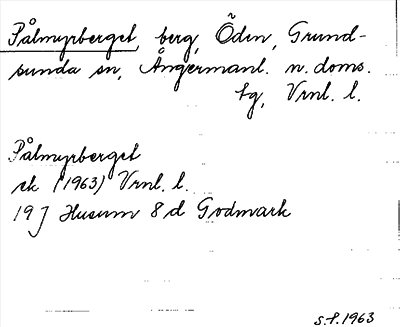 Pålmyrberget, berg, Öden, Grund-
sunda sn, Ångermanl. n. doms.
tg, Vrnl. l.
Pålmyrberget
ek (1963) Vrnl. l.
19 J Husum 8 d Godmark
s.f. 1963